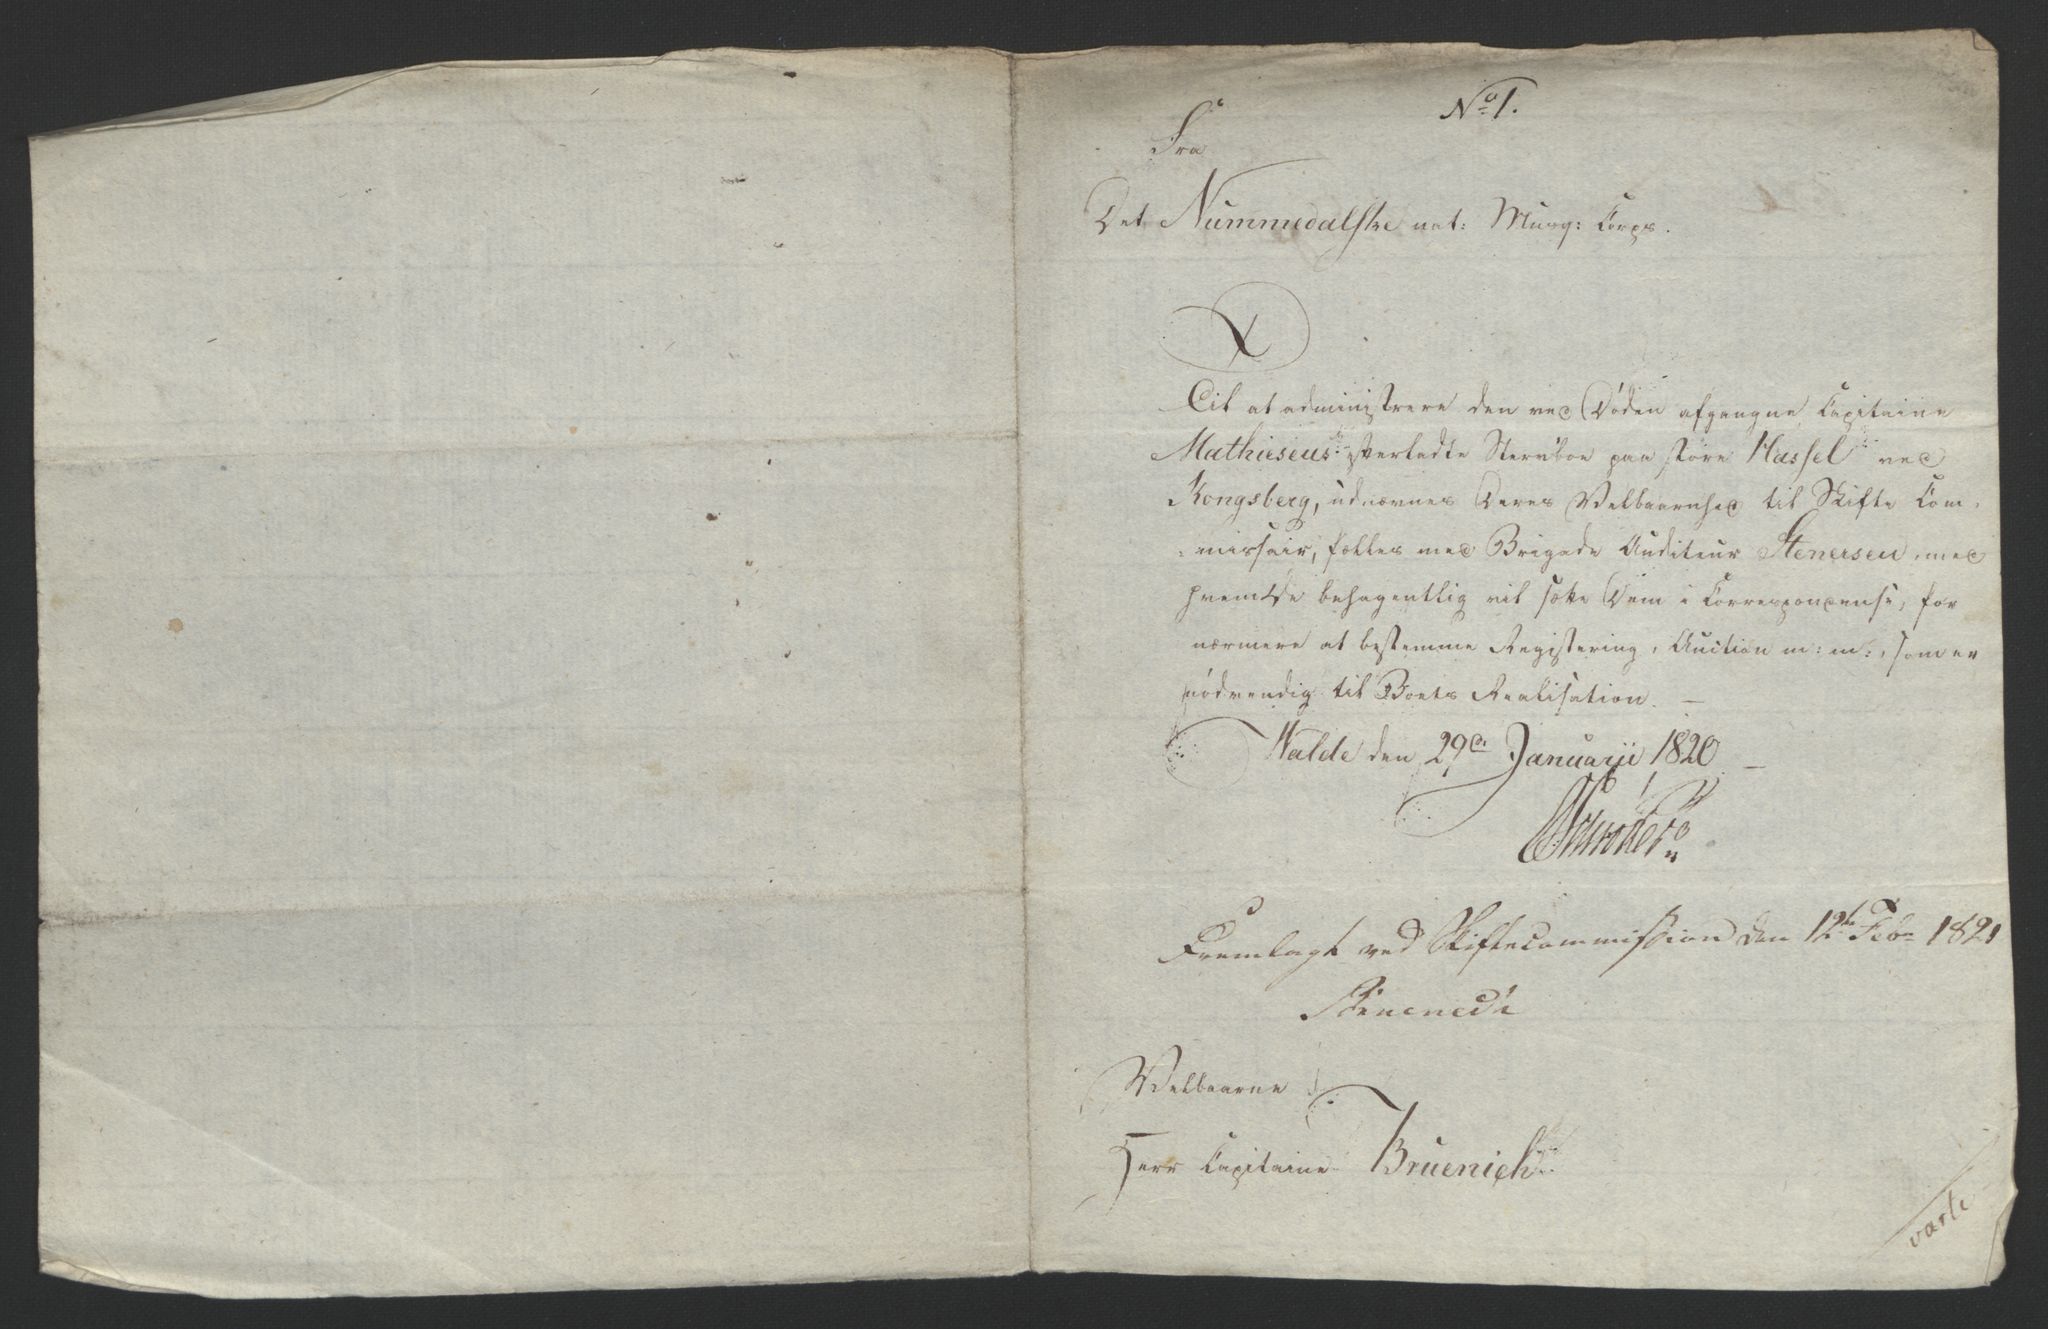 No 1.
Fra
Det Nummedalske nat: Musq: Corps.
Til at administrere den ved Døden afgangne Capitaine
Mathiesens efterladte Stervboe paa store Hassel ved
Kongsberg, udnævnes Deres Velbaarnhed til Skifte Com-
missair, fælles med Brigade Auditeur Stenersen, med
hvem De behagentlig vil sætte Dem i Correspondense, for
nærmere at bestemme Registering, Auction m: m:, som er
nødvendig til Boets Realisation. —
Halde den 29de Januarii 1820 —
Fremlagt ved Skiftecommission den 12te Febr 1821
Velbaarne
Herr Capitaine Bruenich
varte